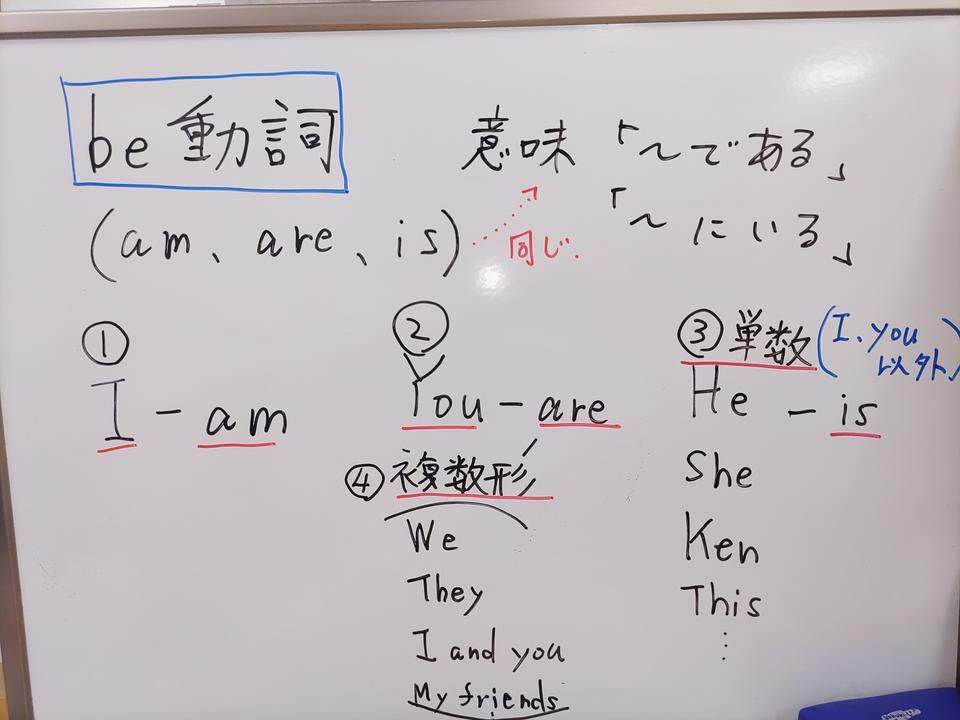 be動詞
意味 「～である」
「～にいる」
(am、are、is)
同じ.
①
I - am
②
You - are
③単数(I、you以外)
He - is
She
Ken
This
⋮
④複数形
We
They
I and you
My friends